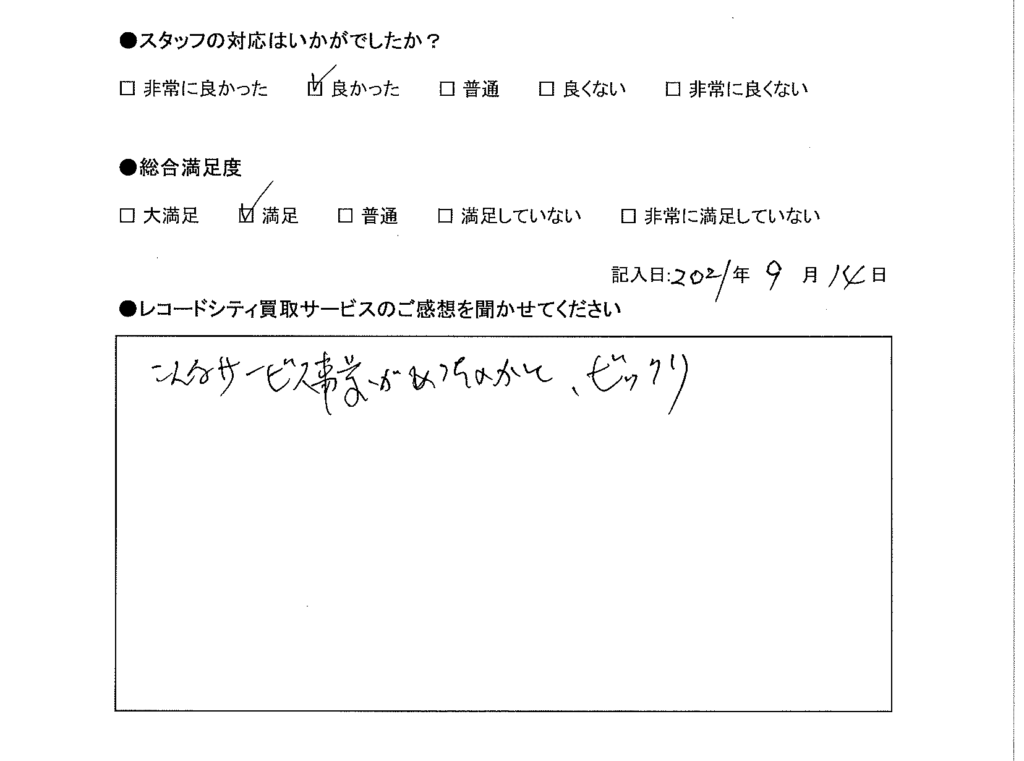 ●スタッフの対応はいかがでしたか？
□ 非常に良かった ☑ 良かった □ 普通 □ 良くない □ 非常に良くない
●総合満足度
□ 大満足 ☑ 満足 □ 普通 □ 満足していない □ 非常に満足していない
記入日:2021年 9 月 14 日
●レコードシティ買取サービスのご感想を聞かせてください
こんなサービス事業があっ、ビックリ